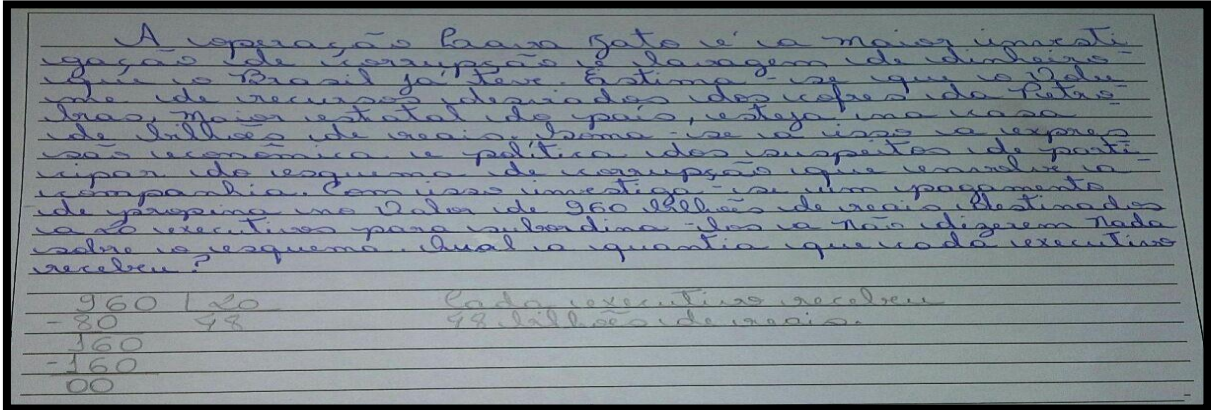 A operação Lava Jato é a maior investi
gação de corrupção e lavagem de dinheiro
que o Brasil já teve. Estima-se que o volu
me de recursos desviados dos cofres da Petro
bras, maior estatal do país, esteja na casa
de bilhões de reais. Soma-se a isso a expres
são econômica e política dos suspeitos de parti
cipar do esquema de corrupção que envolve a
companhia. Com isso investiga-se um pagamento
de propina no valor de 960 bilhões de reais destinados
a 20 executivos para subordina-los a não dizerem nada
sobre o esquema. Qual a quantia que cada executivo
recebeu?
960 | 20 Cada executivo recebeu
- 80 48 48 bilhões de reais.
160
- 160
00